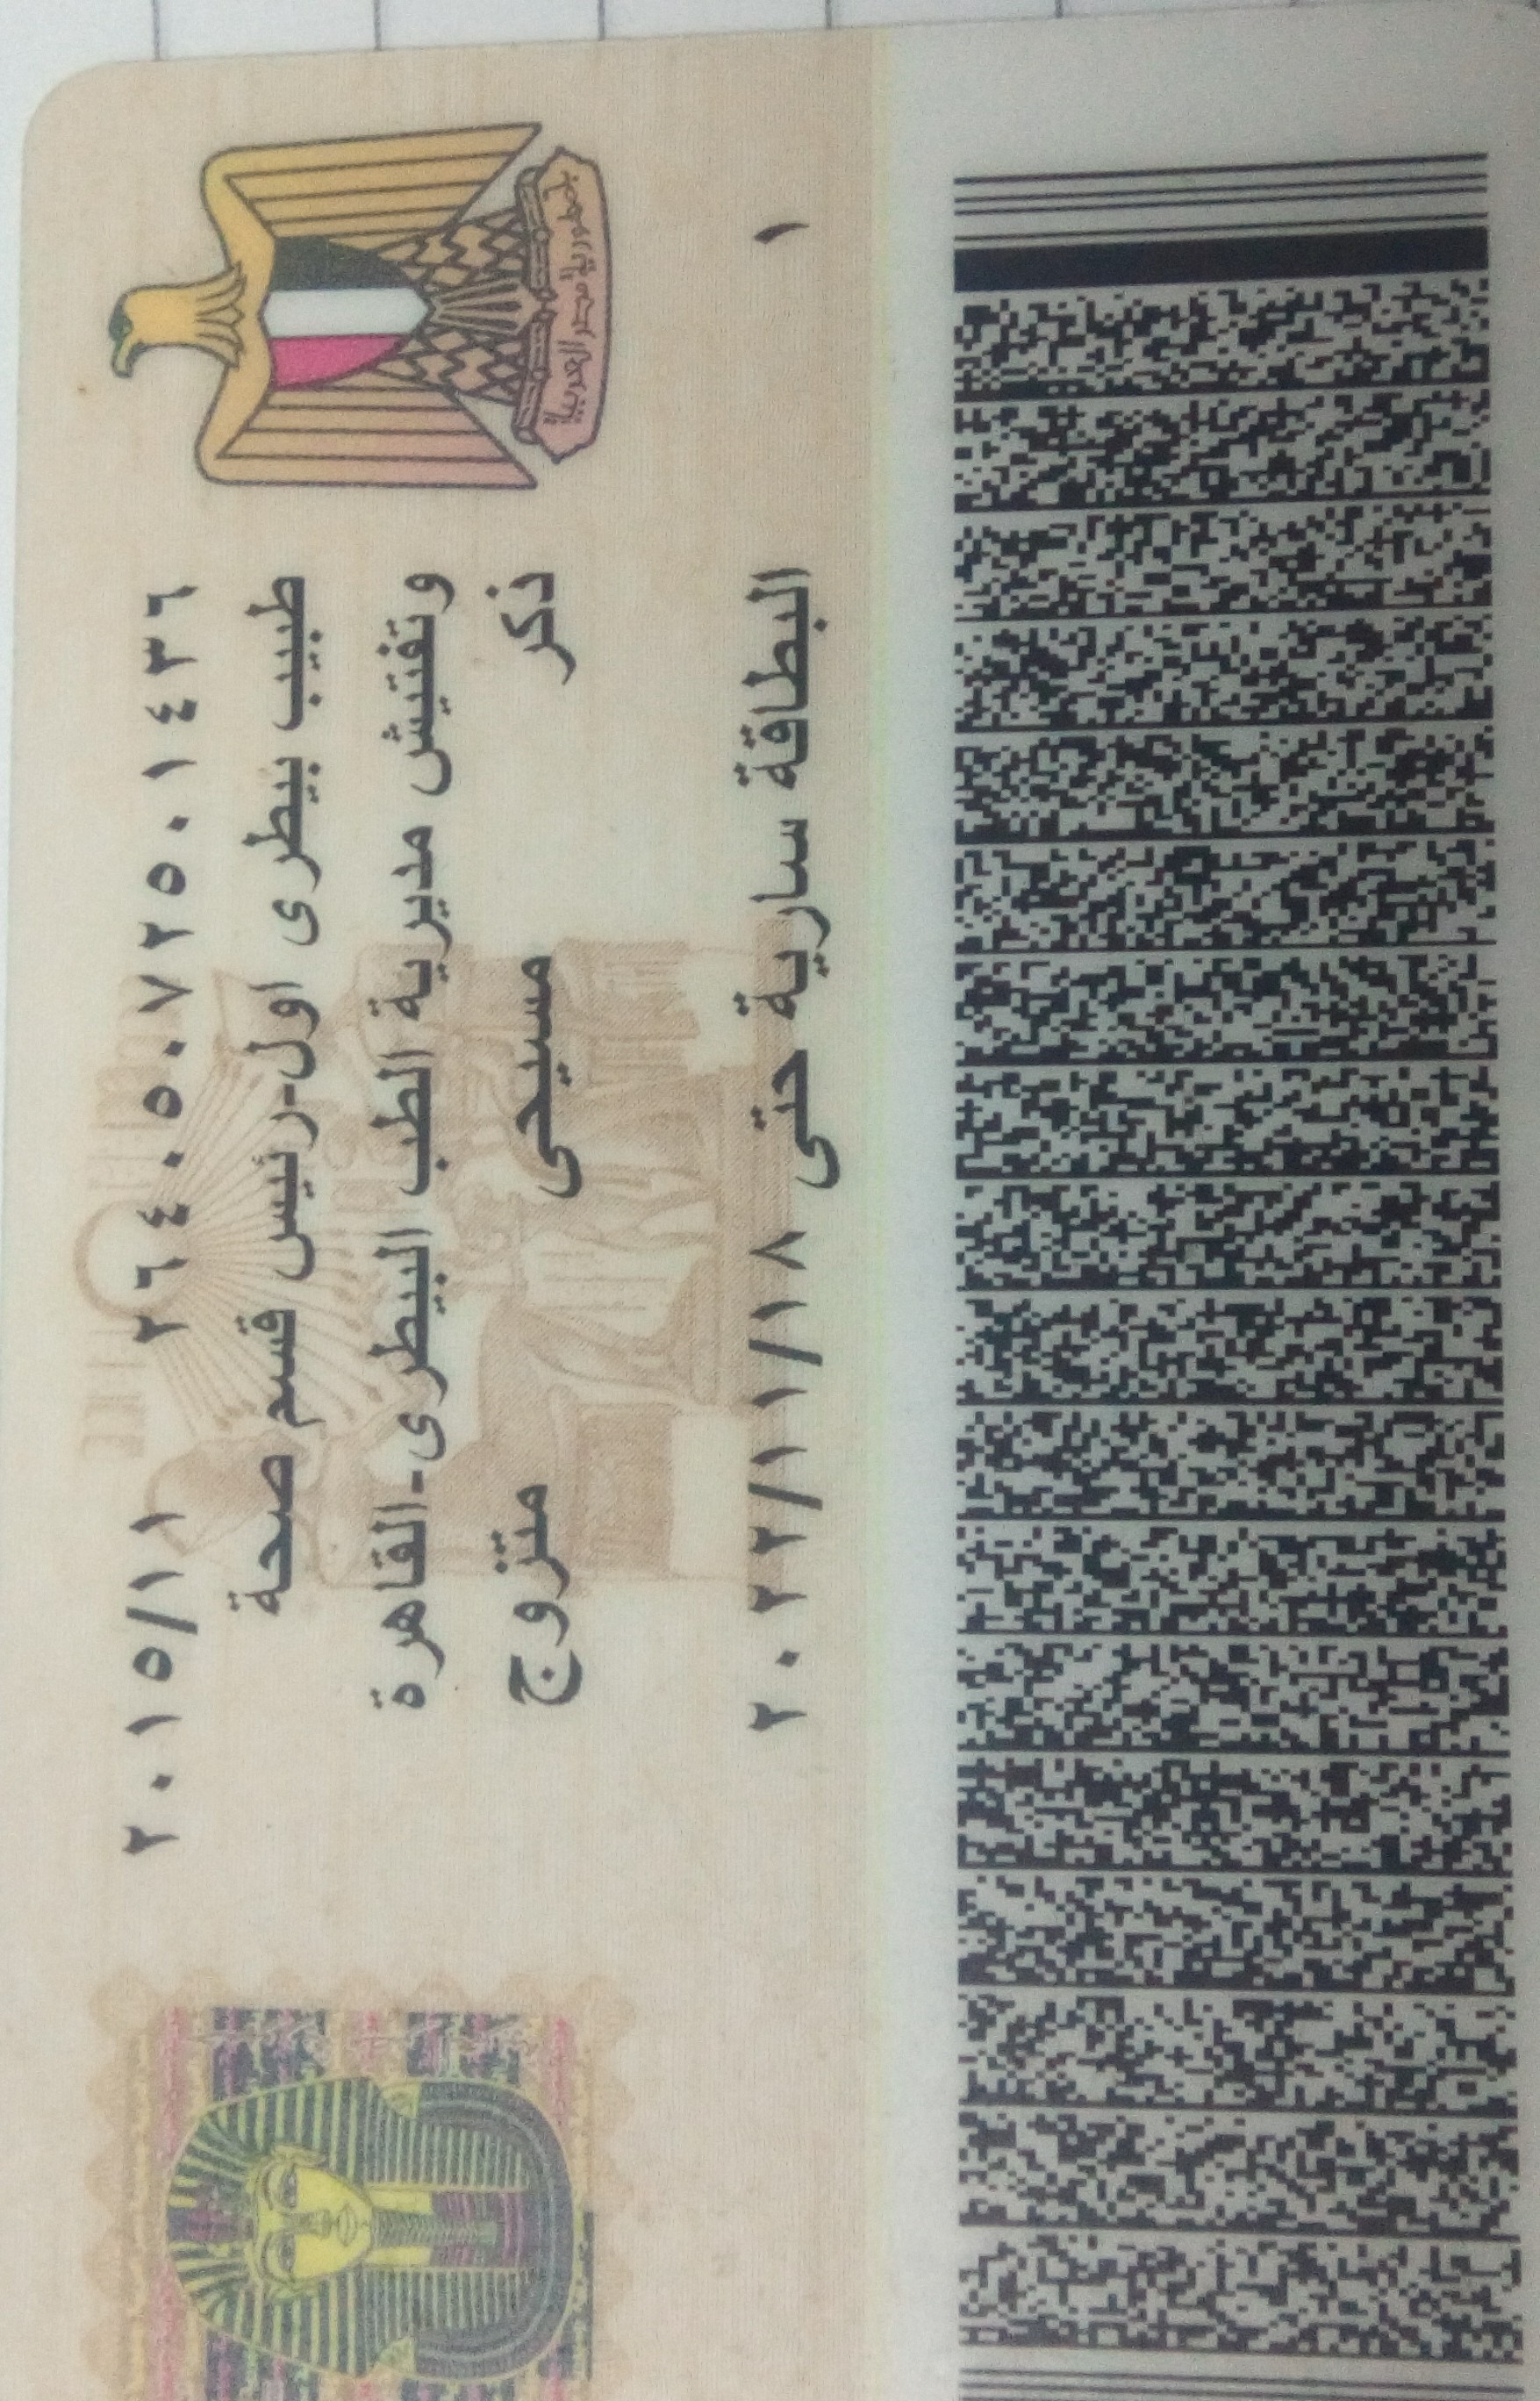 جمهورية مصر العربية
٢٦٤٠٥٠٧٢٥٠١٤٣٦ ٢٠١٥/١١
طبيب بيطرى اول-رئيس قسم صحة
وتفتيش مديرية الطب البيطرى-القاهرة
ذكر مسيحى متزوج
١ البطاقة سارية حتى ٢٠٢٢/١١/١٨